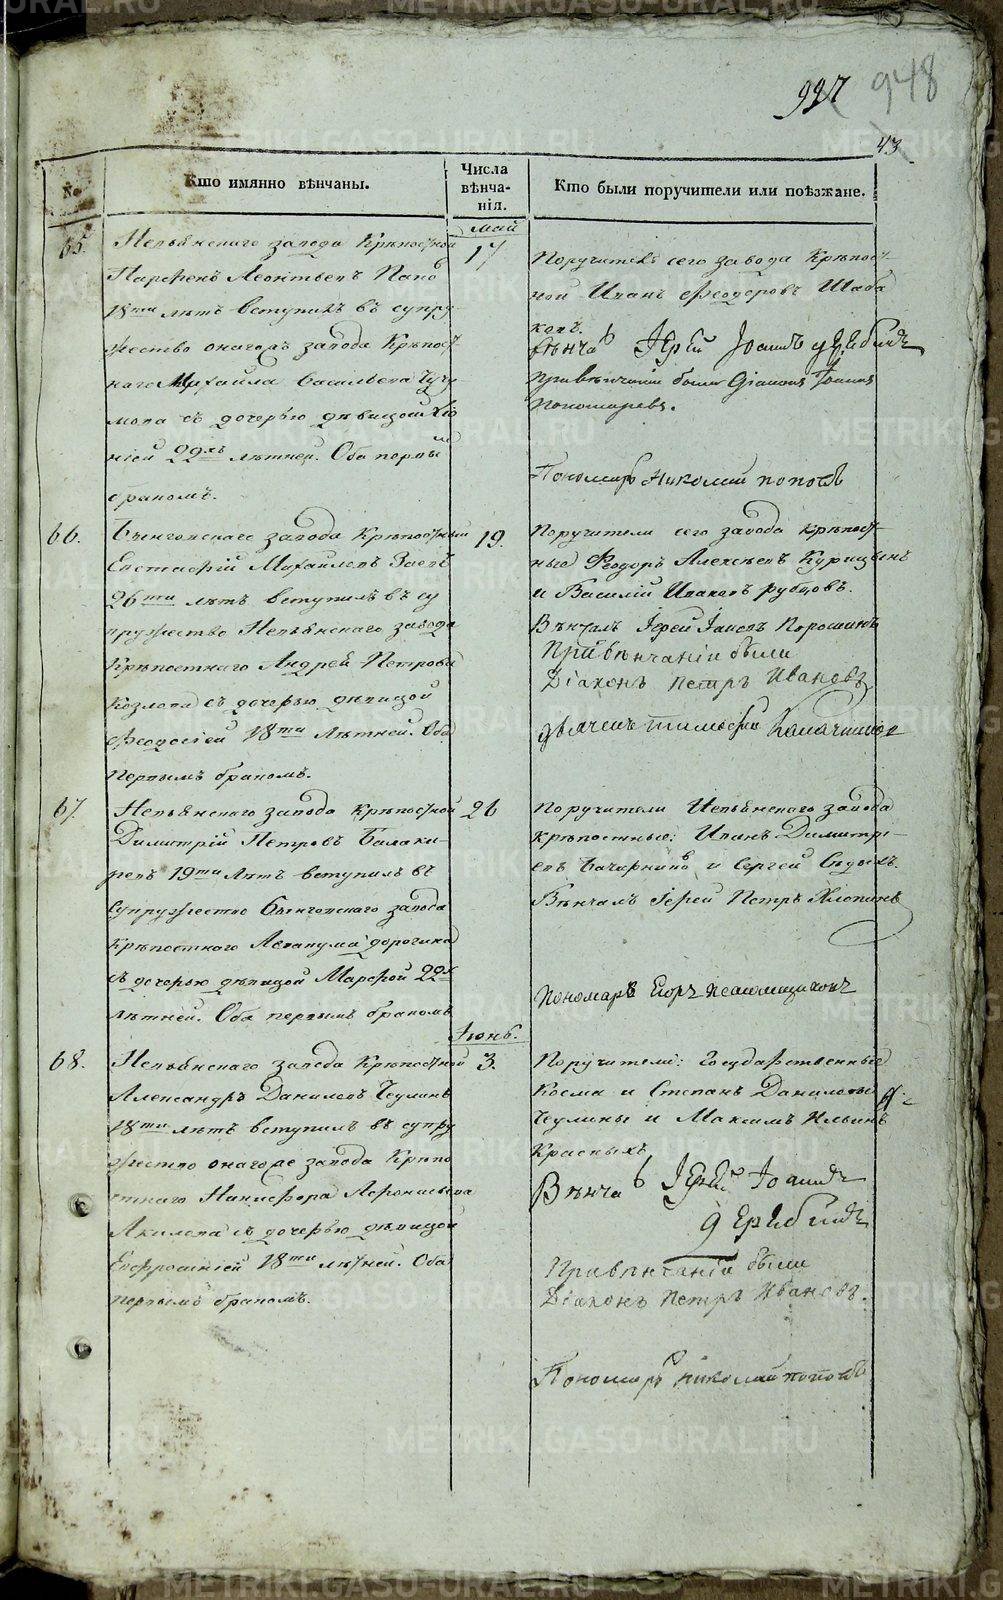 927 948
43
№
Кто имянно вѣнчаны.
Числа вѣнча-нія.
Кто были поручители или поѣзжане.
Май
65.
Невьянскаго завода Крѣпостной
Парфенъ Леонтьевъ Попо
18ти лѣтъ вступилъ въ супру
жество онагожъ завода Крѣпост
наго Михайла Васильева
съ дочерью дѣвицой
нiей 22хъ лѣтней. Оба первы
бракомъ.
17
Поручитель сего завода Крѣпост
ной Иванъ Феодоровъ Шаба
ковъ.
Вѣнча Іерей Іоаннъ
При вѣнчаніи были Діаконъ Іоаннъ
Пономаревъ.
Пономарь Николай Поповъ
66.
Быньговскаго завода Крѣпостный
Евстафій Михайловъ Заевъ
26ти лѣтъ вступилъ въ су
пружество Невьянскаго завода
Крѣпостнаго Андрея Петрова
Козлова съ дочерью дѣвицой
Феодосіей 18ти лѣтней. Оба
первымъ бракомъ.
19.
Поручители сего завода крѣпост
ные Феодоръ Алексѣевъ Курицынъ
и Василій Ивановъ Рубцовъ.
Вѣнчалъ Іерей Іаковъ Порошинъ
При вѣнчаніи были
Діаконъ Петръ Ивановъ
дьячекъ Тимофей
67.
Невьянскаго завода крѣпостной
Димитрій Петровъ Балаки
ревъ 19ти лѣтъ вступилъ въ
супружество Быньговскаго завода
Крѣпостнаго
съ дочерью дѣвицой Марфой 22хъ
лѣтней. Оба первымъ бракомъ
26
Поручители Невьянскаго завода
крѣпостные: Иванъ Димитрі-
евъ и Сергей Сѣдыхъ
Вѣнчалъ Іерей Петръ Хлопинъ
Пономарь Егоръ
Іюнь.
68.
Невьянскаго завода Крѣпостной
Александръ Даниловъ Чеулинъ
18ти лѣтъ вступилъ въ супру
жество онагоже завода Крѣпо
стнаго Никифора Афонасьева
Акилова съ дочерью дѣвицой
Евфросиніей 18ти лѣтней. Оба
первымъ бракомъ.
3.
Поручители: Государственные
Косма и Степанъ Даниловы
Чеулины и Максимъ Ильинъ
Красныхъ
Вѣнча Іерей Іоаннъ
При вѣнчаніи были
Діаконъ Петръ Ивановъ.
Пономарь Николай Поповъ
METRIKI.GASO-URAL.RU